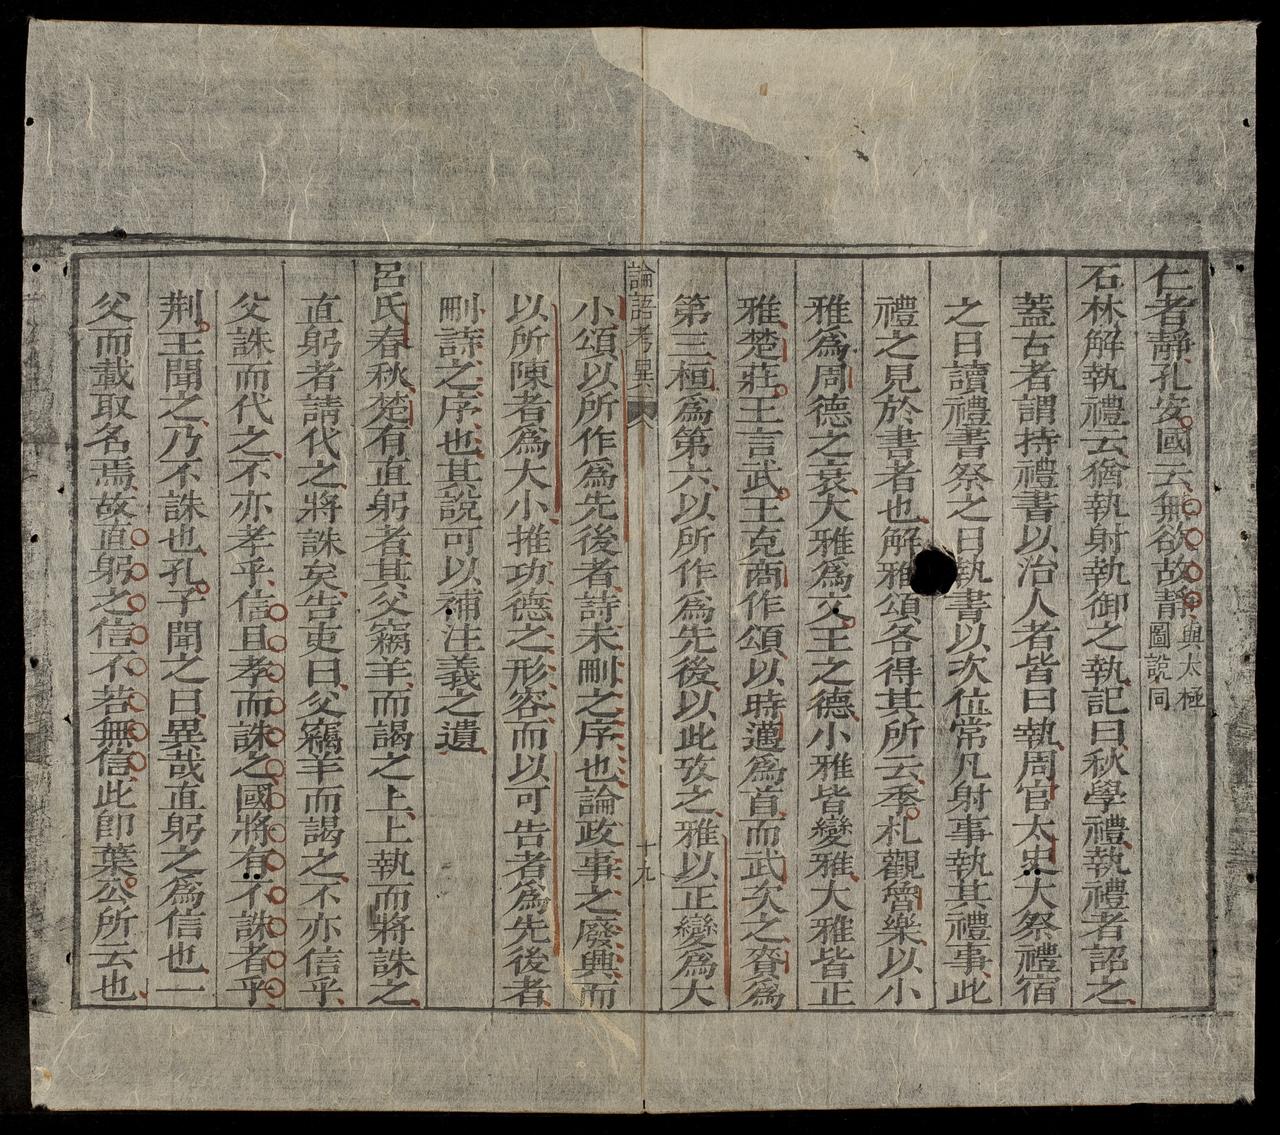 仁者靜孔安國云無欲故靜與太極圖說同
石林解執禮云猶執射執御之執記曰秋學禮執禮者詔之
蓋古者謂持禮書以治人者皆曰執周官太史大祭禮宿
之日讀禮書祭之日執書以次位常凡射事執其禮事此
禮之見於書者也解雅頌各得其所云季札觀魯樂以小
雅爲周德之衰大雅爲文王之德小雅皆變雅大雅皆正
雅楚莊王言武王克商作頌以時邁爲首而武次之賚爲
第三桓爲第六以所作爲先後以此攷之雅以正變爲大
論語考異
十九
小頌以所作爲先後者詩未刪之序也論政事之廢興而
以所陳者爲大小推功德之形容而以可告者爲先後者
刪詩之序也其說可以補注義之遺
呂氏春秋楚有直躬者其父竊羊而謁之上上執而將誅之
直躬者請代之將誅矣告吏曰父竊羊而謁之不亦信乎
父誅而代之不亦孝乎信且孝而誅之國將有不誅者乎
荆王聞之乃不誅也孔子聞之曰異哉直躬之爲信也一
父而載取名焉故直躬之信不若無信此卽葉公所云也